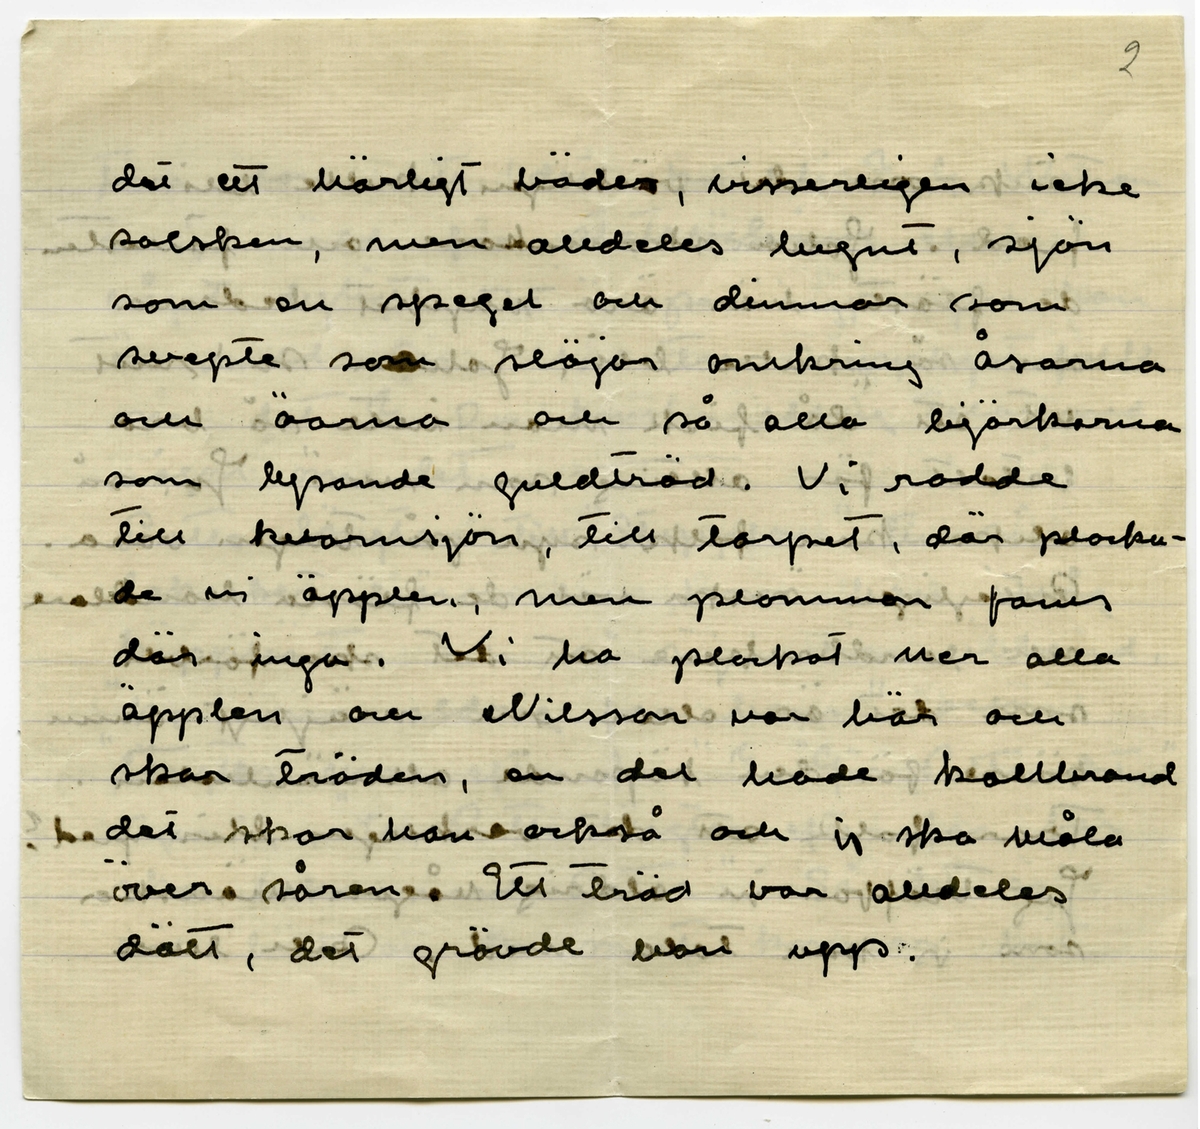 2
det ett härligt väder, visserligen icke
solsken, men alldeles lugnt, sjön
som en spegel och dimmor som
svepte som slöjor omkring åsarna
och öarna och så alla björkarna
som lysande guldträd. Vi rodde
till kvarnsjön, till torpet, där plocka-
de vi äpplen, men plommon fanns
där inga. Vi ha plockat ner alla
äpplen och Nilsson var här och
skar träden, en del hade kallbrand
det skar han också och jg ska måla
över såren. Ett träd var alldeles
dött, det grävde han upp.